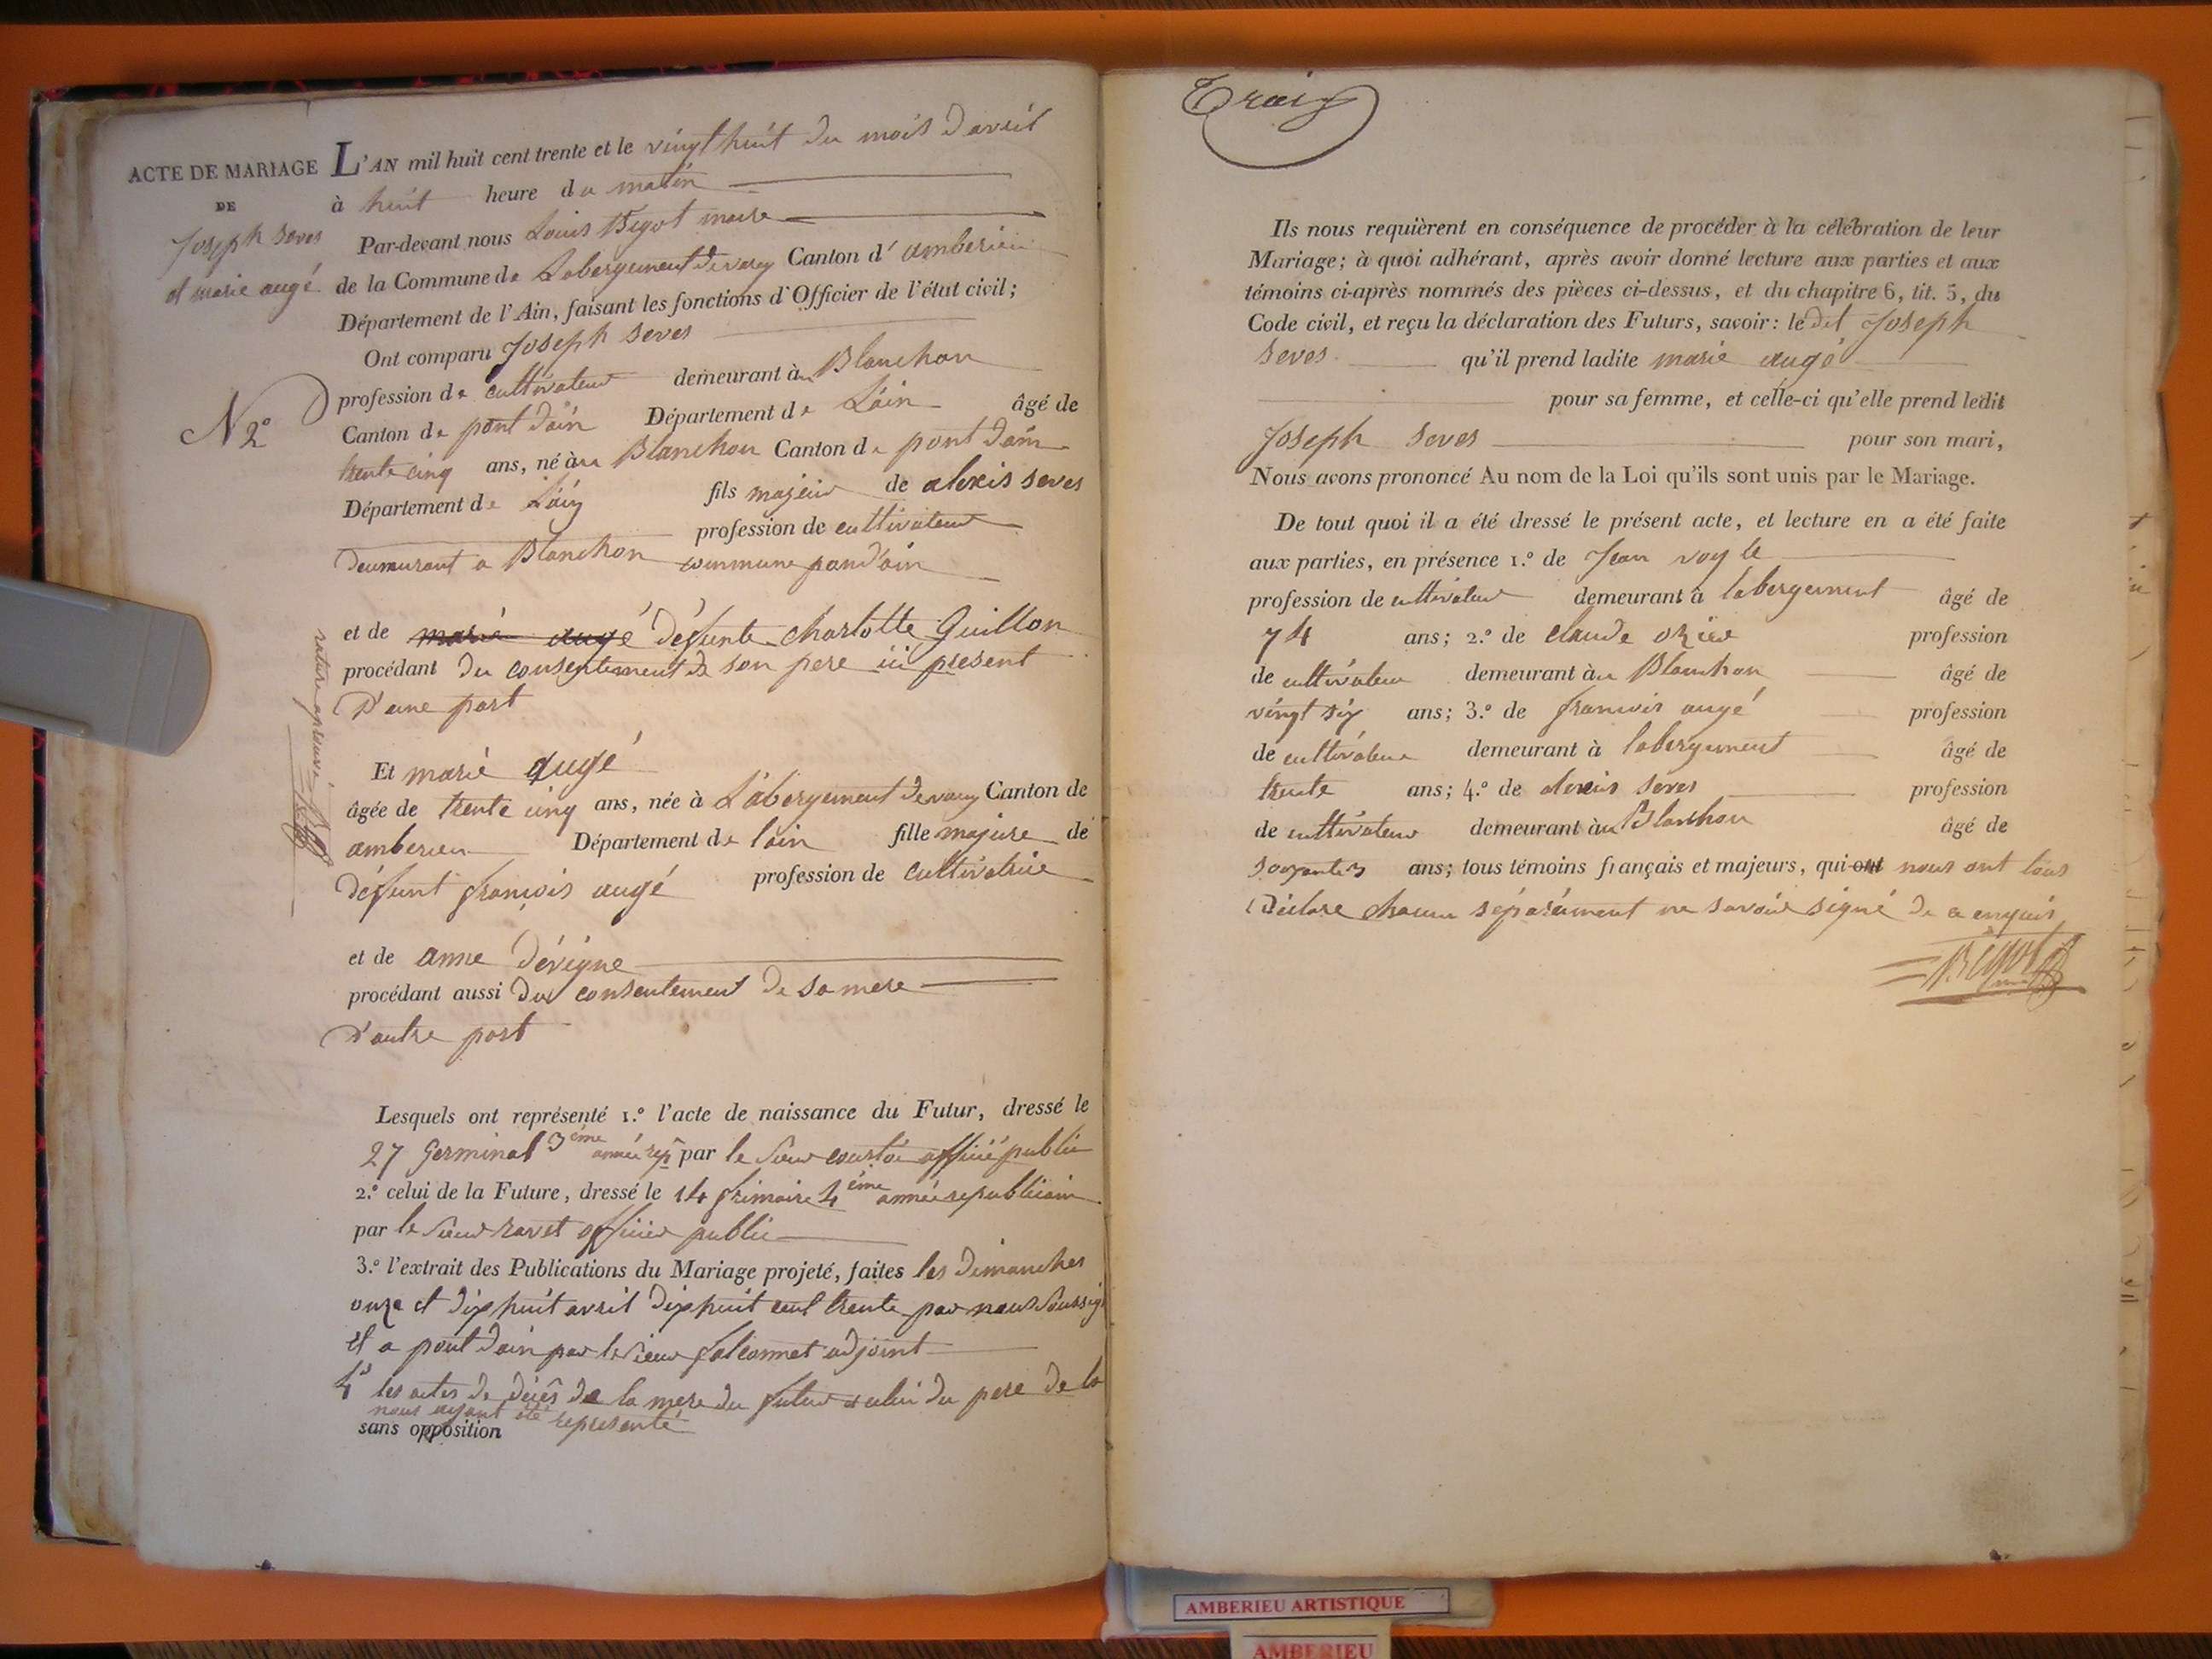 ACTE DE MARIAGE
DE
Joseph Seves
et marie augé
N 2°
L'AN mil huit cent trente et le vingt huit du mois d avril
à huit heure du matin
Par-devant nous Louis Begot maire
de la Commune de Labergement de varey Canton d' amberieu
Département de l'Ain, faisant les fonctions d'Officier de l'état civil;
Ont comparu Joseph Seves
profession de cultivateur demeurant au Blanchon
Canton de pont d'ain Département de Lain âgé de
trente cinq ans, né au Blanchon Canton de pont dain
Département de Lain fils majeur de alexis seves
profession de cultivateur
demeurant a Blanchon commune pond'ain
et de marie augé défunte charlotte Guillon
procédant du consentement de son pere ici present
D'une part
rature aprouvé
Et marie augé
âgée de trente cinq ans, née à L'abergement de varey Canton de
amberieu Département de lain fille majure de
défunt françois augé profession de cultivatrice
et de anne dévigne
procédant aussi du consentement de sa mere
D'autre part
Lesquels ont représenté 1.° l'acte de naissance du Futur, dressé le
27 Germinal 3ème année rep par le sieur officié public
2.° celui de la Future, dressé le 14 frimaire 4ème année republicain
par le sieur ravet officier public
3.° l'extrait des Publications du Mariage projeté, faites les dimanches
onze et dixhuit avril dixhuit cent trente par nous soussigé
et a pont dain par le sieur falconnet adjoint
4° les actes de décês de la mere du futur et celui du pere de la
nous ayant été representé
sans opposition
Trois
Ils nous requièrent en conséquence de procéder à la célébration de leur
Mariage; à quoi adhérant, après avoir donné lecture aux parties et aux
témoins ci-après nommés des pièces ci-dessus, et du chapitre 6, tit. 5, du
Code civil, et reçu la déclaration des Futurs, savoir: le dit Joseph
Seves qu'il prend ladite marie augé
pour sa femme, et celle-ci qu'elle prend ledit
Joseph Seves pour son mari,
Nous avons prononcé Au nom de la Loi qu'ils sont unis par le Mariage.
De tout quoi il a été dressé le présent acte, et lecture en a été faite
aux parties, en présence 1.° de Jean voyle
profession de cultivateur demeurant à labergement âgé de
74 ans; 2.° de claude profession
de cultivateur demeurant au Blanchon âgé de
vingt six ans; 3.° de françois augé profession
de cultivateur demeurant à labergement âgé de
trente ans; 4.° de alexis seves profession
de cultivateur demeurant au Blanchon âgé de
ans; tous témoins français et majeurs, qui ont nous ont tous
déclare chacun séparément ne savoir signé de ce enquis
Begot
AMBERIEU ARTISTIQUE
AMBERIEU